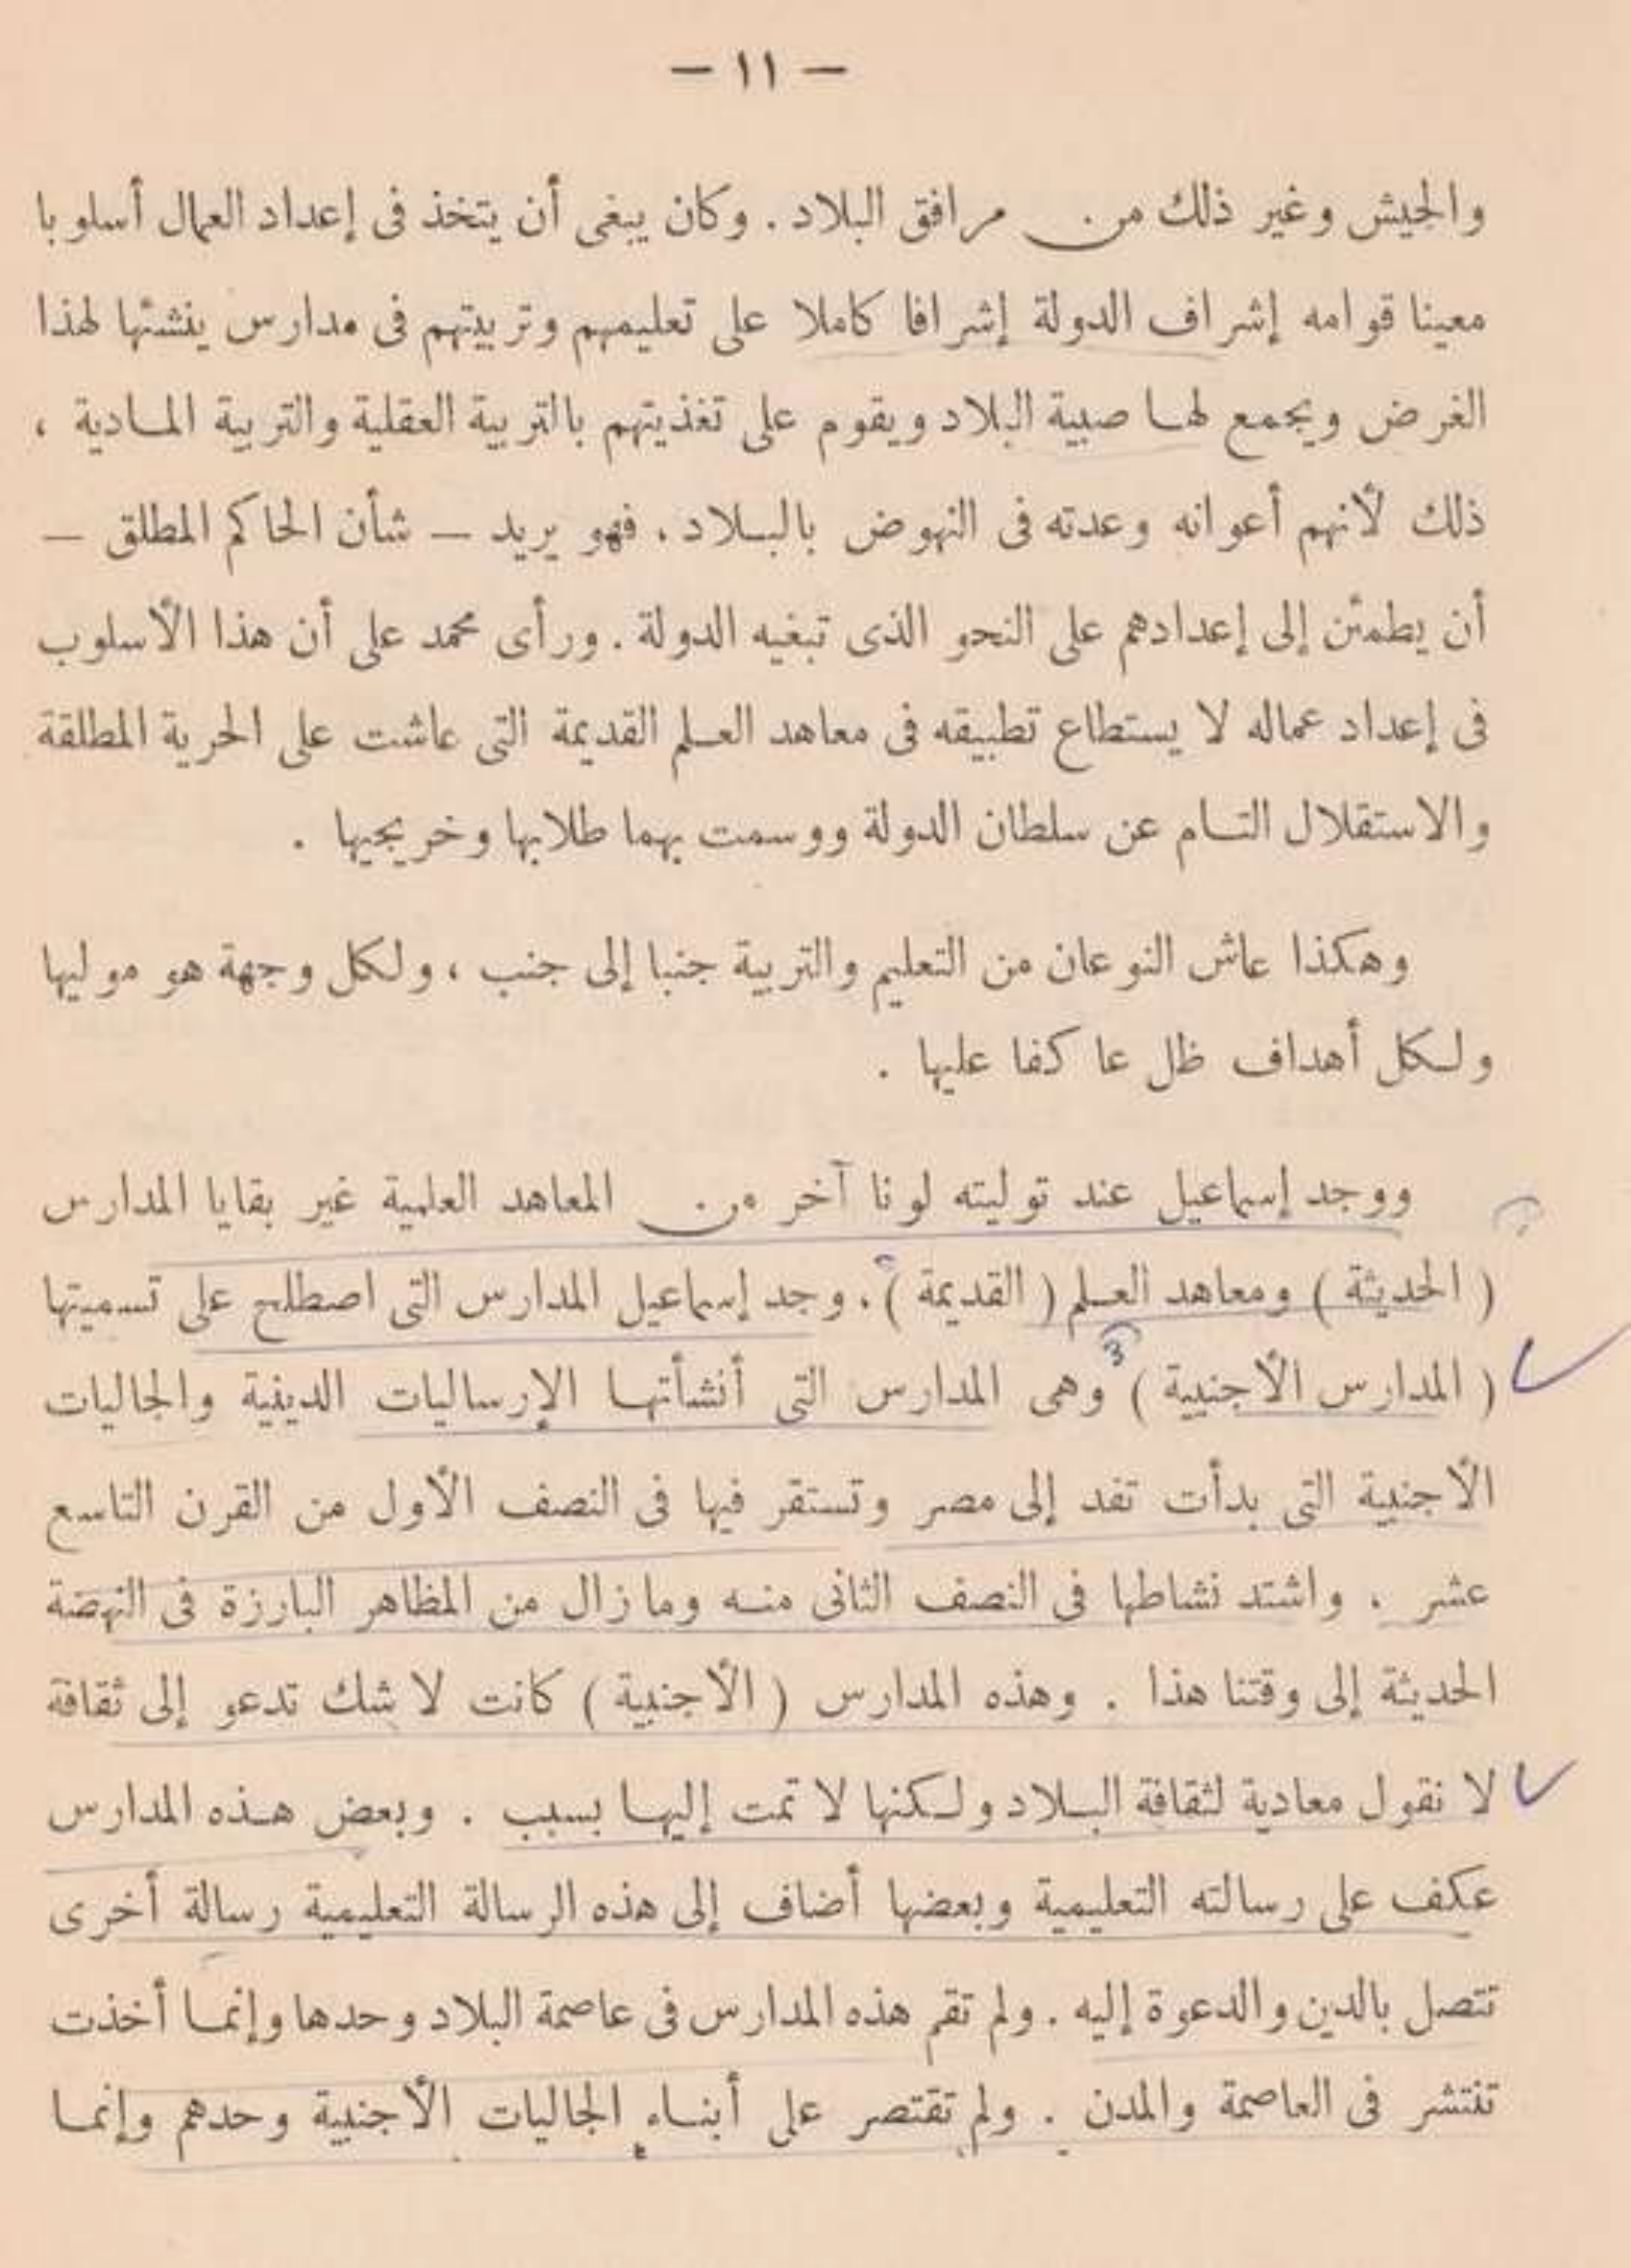 — ١١ —
والجيش وغير ذلك من مرافق البلاد . وكان يبغى أن يتخذ فى إعداد العمال أسلوبا
معينا قوامه إشراف الدولة إشرافا كاملا على تعليمهم وتربيتهم فى مدارس ينشئها لهذا
الغرض ويجمع لها صبية البلاد ويقوم على تغذيتهم بالتربية العقلية والتربية المادية ،
ذلك لأنهم أعوانه وعدته فى النهوض بالبلاد . فهو يريد — شأن الحاكم المطلق —
أن يطمئن إلى إعدادهم على النحو الذى تبغيه الدولة . ورأى محمد على أن هذا الأسلوب
فى إعداد عماله لا يستطاع تطبيقه فى معاهد العلم القديمة التى عاشت على الحرية المطلقة
والاستقلال التام عن سلطان الدولة ووسمت بهما طلابها وخريجيها .
وهكذا عاش النوعان من التعليم والتربية جنبا إلى جنب ، ولكل وجهة هو موليها
ولكل أهداف ظل عاكفا عليها .
ووجد إسماعيل عند توليته لونا آخر من المعاهد العلمية غير بقايا المدارس
( الحديثة ) ومعاهد العلم ( القديمة ) . وجد إسماعيل المدارس التى اصطلح على تسميتها
( المدارس الأجنبية ) وهى المدارس التى أنشأتها الإرساليات الدينية والجاليات
الأجنبية التى بدأت تفد إلى مصر وتستقر فيها فى النصف الأول من القرن التاسع
عشر . واشتد نشاطها فى النصف الثانى منه وما زال من المظاهر البارزة فى النهضة
الحديثة إلى وقتنا هذا . وهذه المدارس ( الأجنبية ) كانت لا شك تدعو إلى ثقافة
لا نقول معادية لثقافة البلاد ولكنها لا تمت إليها بسبب . وبعض هذه المدارس
عكف على رسالته التعليمية وبعضها أضاف إلى هذه الرسالة التعليمية رسالة أخرى
تتصل بالدين والدعوة إليه . ولم تقم هذه المدارس فى عاصمة البلاد وحدها وإنما أخذت
تنتشر فى العاصمة والمدن . ولم تقتصر على أبناء الجاليات الأجنبية وحدهم وإنما